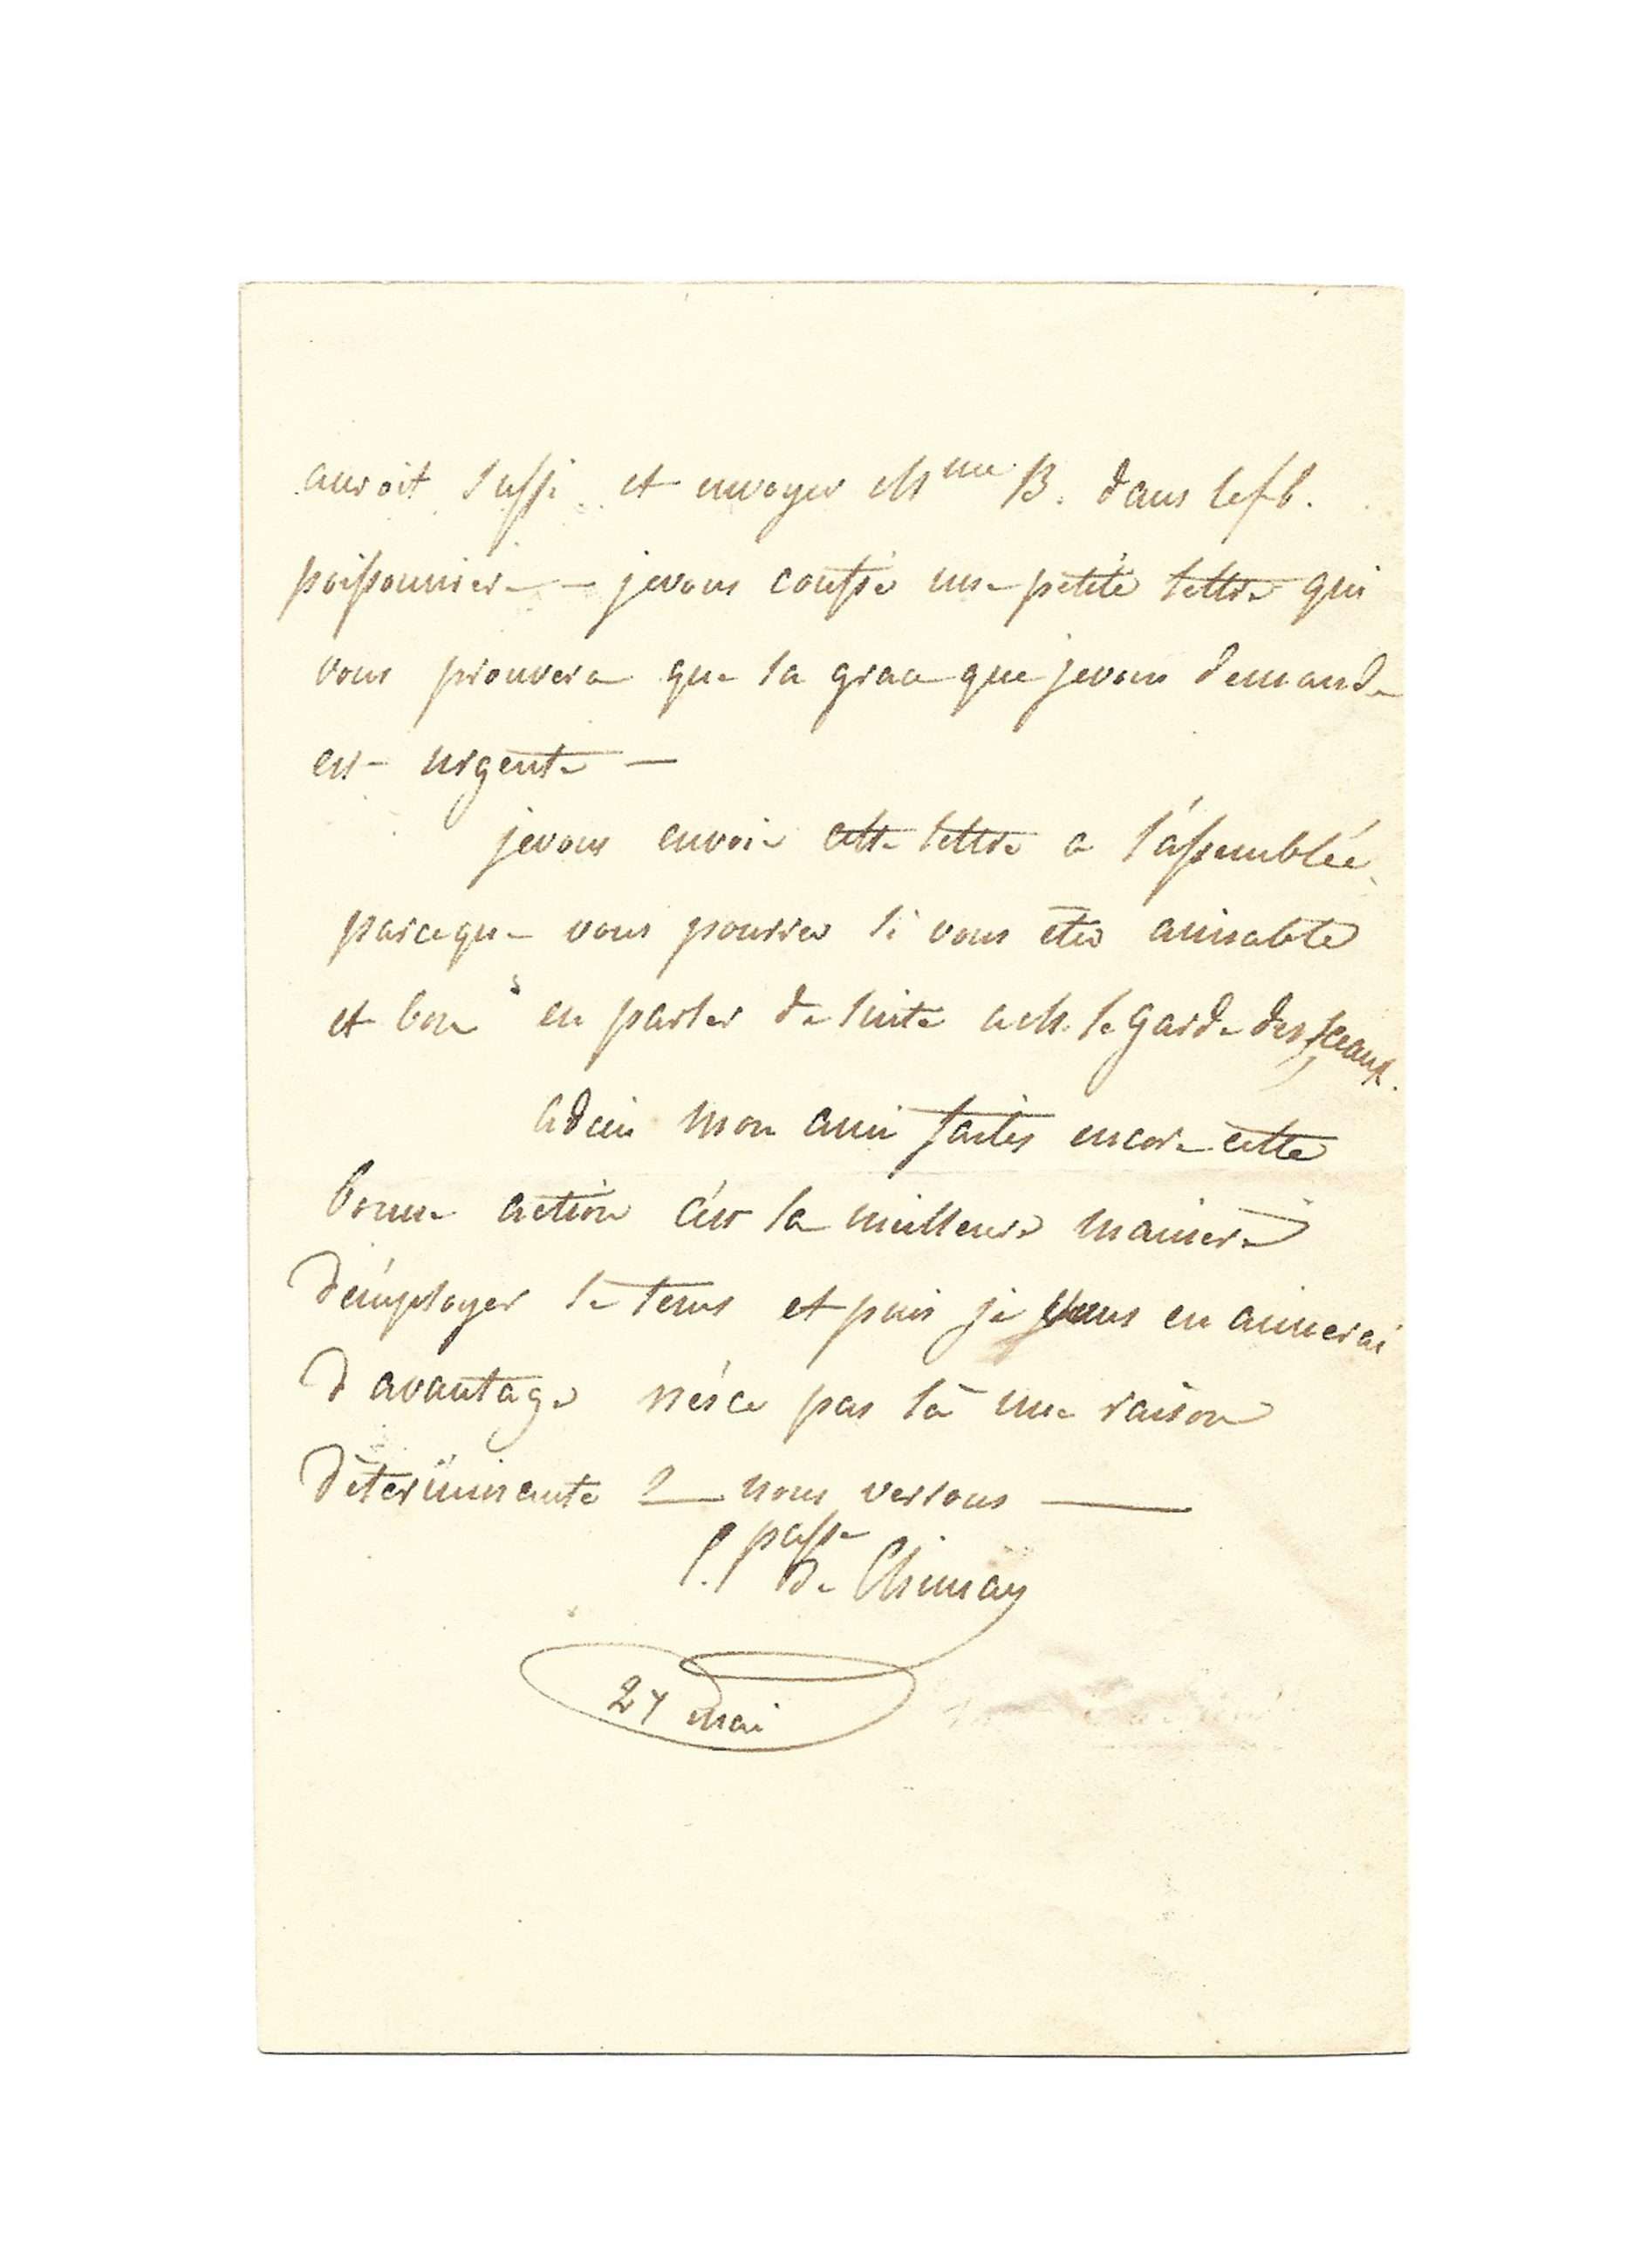 auroit suffi et envoyer Mme B. dans le fb.
poissonniere — je vous confie une petite lettre qui
vous prouvera que la grace que je vous demande
est urgente —
je vous envoie cette lettre a l'assemblée
parceque vous pourrez si vous etes aimable
et bon en parler de suite a M. le garde des sceaux.
adieu mon ami faites encore cette
bonne action c'est la meilleure maniere
d'employer le tems et puis je vous en aimerai
d avantage n'ésce pas là une raison
déterminante ? — nous verrons —
passe
P. de Chimay
27 mai